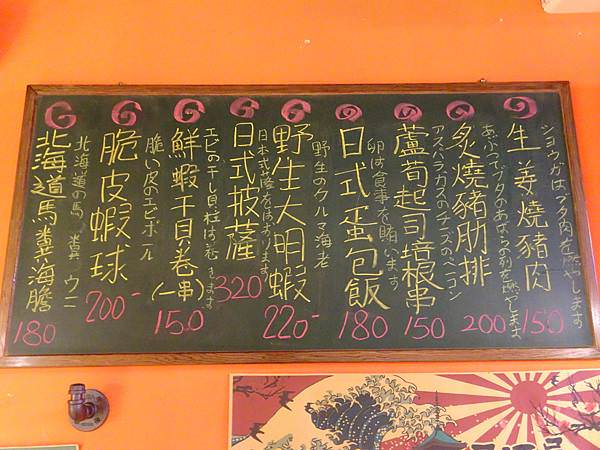 生姜燒豬肉
ショウガはブタ肉を燃やします
150
炙燒豬肋排
あぶってブタのあばらの列を燃やします
200
蘆筍起司培根串
アスパラガスのチーズのベーコン
150
日式蛋包飯
卵は食事を賄います
180
野生大明蝦
野生のクルマ海老
220-
日式披薩
320
鮮蝦干貝卷(一串)
エビの干し貝柱は巻きます
150
脆皮蝦球
脆い皮のエビボール
200-
北海道馬糞海膽
北海道の馬糞ウニ
180